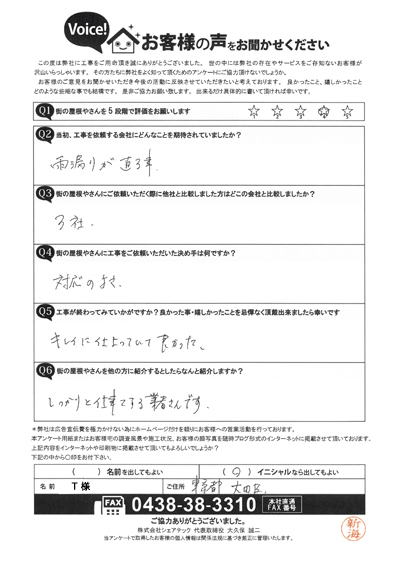 Voice!
お客様の声をお聞かせください
この度は弊社に工事をご用命頂き誠にありがとうございました。 世の中には弊社の存在やサービスをご存知ないお客様が
沢山いらっしゃいます。 その方たちに弊社をよく知って頂くためのアンケートにご協力頂けないでしょうか。
お客様のご意見をお聞かせいただき今後の活動に反映させていただきたいと考えております。 良かったこと、嬉しかったこと
どのような些細な事でも結構です。 是非ご協力お願い致します。 出来るだけ具体的に書いて頂ければ幸いです。
Q1 街の屋根やさんを5段階で評価をお願いします
Q2 当初、工事を依頼する会社にどんなことを期待されていましたか?
雨漏りが直る事
Q3 街の屋根やさんにご依頼いただく際に他社と比較しました方はどこの会社と比較しましたか?
3社.
Q4 街の屋根やさんに工事をご依頼いただいた決め手は何ですか?
対応のよさ.
Q5 工事が終わってみていかがですか? 良かった事・嬉しかったことを忌憚なく頂戴出来ましたら幸いです
キレイに仕上っていて良かった、
Q6 街の屋根やさんを他の方に紹介するとしたらなんと紹介しますか?
しっかりと仕事をする業者さんです.
*弊社は広告宣伝費を極力かけない為にホームページだけを頼りにお客様への営業活動を行っております。
本アンケート用紙またはお客様宅の調査風景や施工状況、お客様の顔写真を随時ブログ形式のインターネットに掲載させて頂いております。
上記内容をインターネットや印刷物に掲載させて頂いてもよろしいでしょうか?
下記の中から〇印をお付下さい。
( ) 名前を出してもよい (〇) イニシャルなら出してもよい
名前 T様 ご住所 東京都 大田区
FAX 0438-38-3310 本社直通 FAX番号
ご協力ありがとうございました。
株式会社シェアテック 代表取締役 大久保 誠二
当アンケートで取得したお客様の個人情報は関係法規に基づき厳正に管理いたします。
新海